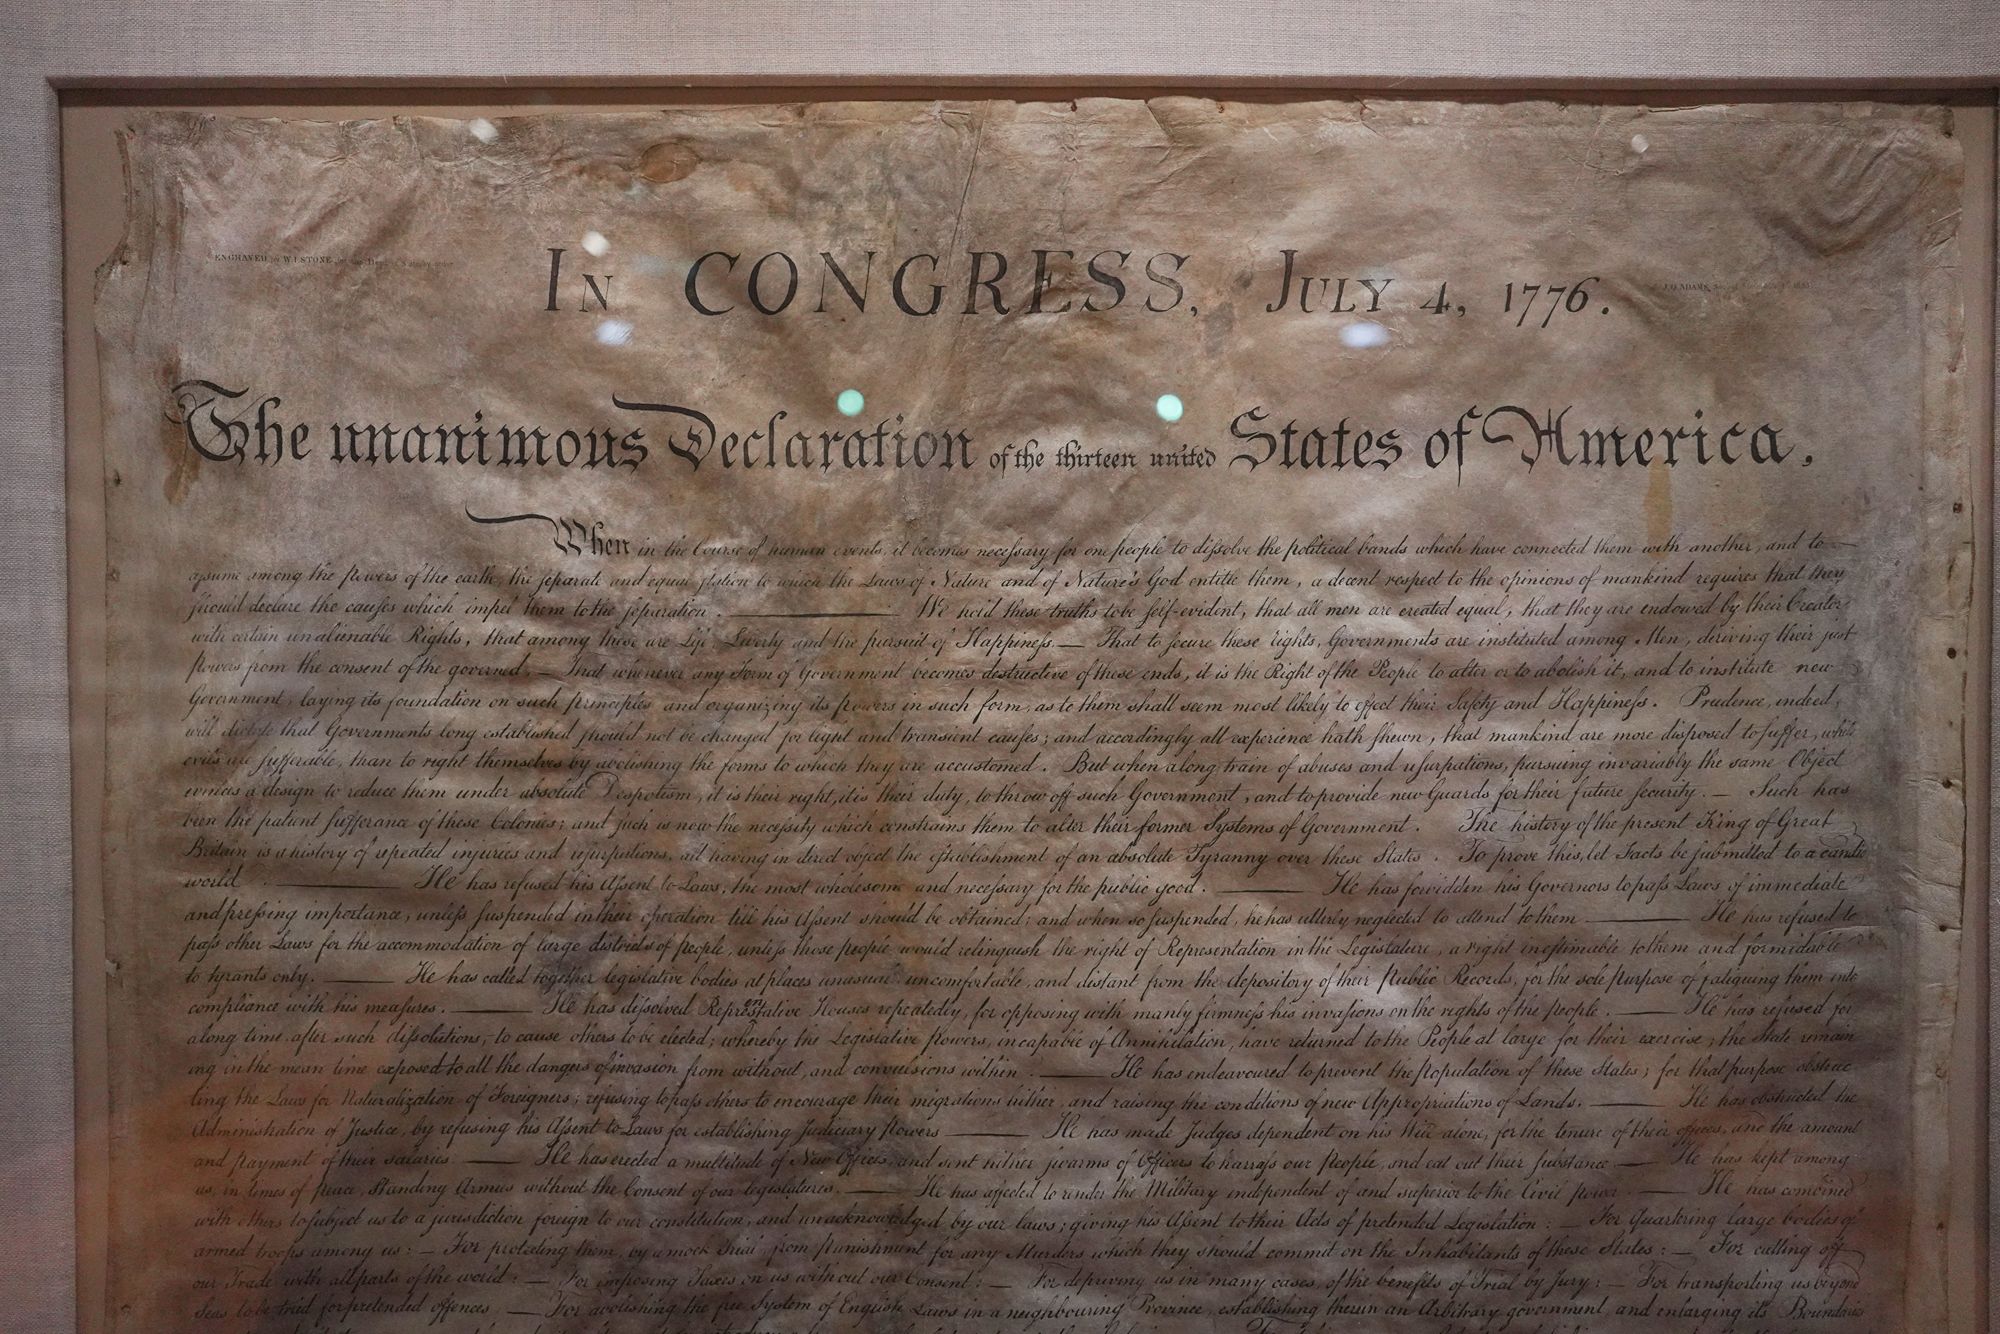 ENGRAVED by W.I.STONE
IN CONGRESS, JULY 4, 1776.
J.Q.ADAMS
The unanimous Declaration of the thirteen united States of America,
When in the Course of human events, it becomes necessary for one people to dissolve the political bands which have connected them with another, and to
assume among the powers of the earth, the separate and equal station to which the Laws of Nature and of Nature's God entitle them, a decent respect to the opinions of mankind requires that they
should declare the causes which impel them to the separation. — We hold these truths to be self-evident, that all men are created equal, that they are endowed by their Creator
with certain unalienable Rights, that among these are Life, Liberty and the pursuit of Happiness. — That to secure these rights, Governments are instituted among Men, deriving their just
powers from the consent of the governed, — That whenever any Form of Government becomes destructive of these ends, it is the Right of the People to alter or to abolish it, and to institute new
Government, laying its foundation on such principles and organizing its powers in such form, as to them shall seem most likely to effect their Safety and Happiness. Prudence, indeed,
will dictate that Governments long established should not be changed for light and transient causes; and accordingly all experience hath shewn, that mankind are more disposed to suffer, while
evils are sufferable, than to right themselves by abolishing the forms to which they are accustomed. But when a long train of abuses and usurpations, pursuing invariably the same Object
evinces a design to reduce them under absolute Despotism, it is their right, it is their duty, to throw off such Government, and to provide new Guards for their future security. — Such has
been the patient sufferance of these Colonies; and such is now the necessity which constrains them to alter their former Systems of Government. The history of the present King of Great
Britain is a history of repeated injuries and usurpations, all having in direct object the establishment of an absolute Tyranny over these States. To prove this, let Facts be submitted to a candid
world. — He has refused his Assent to Laws, the most wholesome and necessary for the public good. — He has forbidden his Governors to pass Laws of immediate
and pressing importance, unless suspended in their operation till his Assent should be obtained; and when so suspended, he has utterly neglected to attend to them — He has refused to
pass other Laws for the accommodation of large districts of people, unless those people would relinquish the right of Representation in the Legislature, a right inestimable to them and formidable
to tyrants only. — He has called together legislative bodies at places unusual, uncomfortable, and distant from the depository of their Public Records, for the sole purpose of fatiguing them into
compliance with his measures. — He has dissolved Representative Houses repeatedly, for opposing with manly firmness his invasions on the rights of the people. — He has refused for
a long time, after such dissolutions, to cause others to be elected; whereby the Legislative powers, incapable of Annihilation, have returned to the People at large for their exercise; the State remain
ing in the mean time exposed to all the dangers of invasion from without, and convulsions within. — He has endeavoured to prevent the population of these States; for that purpose obstruc
ting the Laws for Naturalization of Foreigners; refusing to pass others to encourage their migrations hither, and raising the conditions of new Appropriations of Lands. — He has obstructed the
Administration of Justice, by refusing his Assent to Laws for establishing Judiciary powers — He has made Judges dependent on his Will alone, for the tenure of their offices, and the amount
and payment of their salaries. — He has erected a multitude of New Offices, and sent hither swarms of Officers to harrass our people, and eat out their substance. — He has kept among
us, in times of peace, Standing Armies without the Consent of our legislatures. — He has affected to render the Military independent of and superior to the Civil power. — He has combined
with others to subject us to a jurisdiction foreign to our constitution, and unacknowledged by our laws; giving his Assent to their Acts of pretended Legislation: — For Quartering large bodies of
armed troops among us: — For protecting them, by a mock Trial, from punishment for any Murders which they should commit on the Inhabitants of these States: — For cutting off
our Trade with all parts of the world: — For imposing Taxes on us without our Consent: — For depriving us in many cases, of the benefits of Trial by Jury: — For transporting us beyond
Seas to be tried for pretended offences — For abolishing the free System of English Laws in a neighbouring Province, establishing therein an Arbitrary government, and enlarging its Boundaries